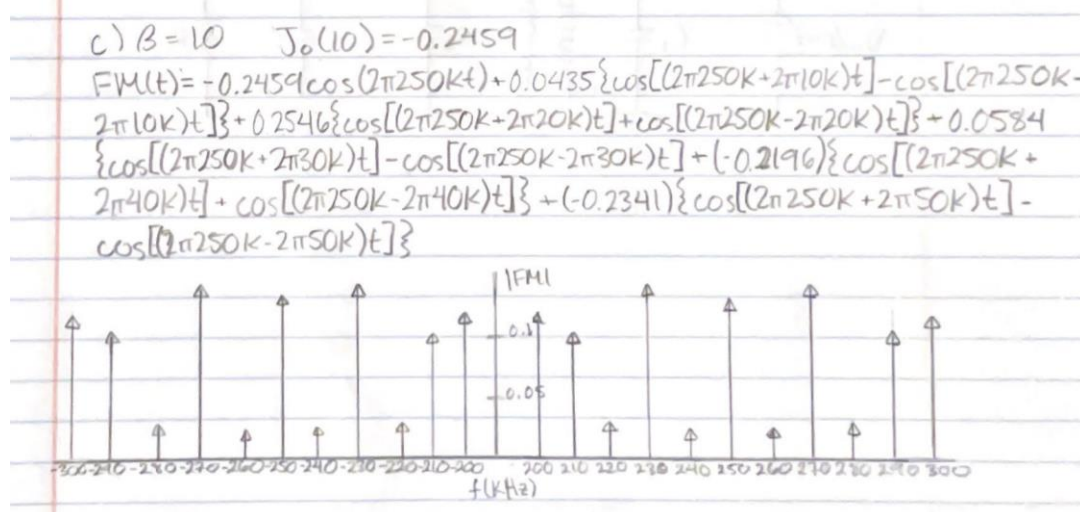 c) β = 10 J₀(10) = -0.2459
FM(t) = -0.2459cos(2π250kt) + 0.0435{cos[(2π250K+2π10K)t] - cos[(2π250K-
2π10K)t]} + 0.2546{cos[(2π250K+2π20K)t] + cos[(2π250K-2π20K)t]} + 0.0584
{cos[(2π250K+2π30K)t] - cos[(2π250K-2π30K)t] + (-0.2196){cos[(2π250K +
2π40K)t] + cos[(2π250K-2π40K)t]} + (-0.2341){cos[(2π250K + 2π50K)t] -
cos[(2π250K-2π50K)t]}
|FM|
0.1
0.05
-300 -290 -280 -270 -260 -250 -240 -230 -220 -210 -200 200 210 220 230 240 250 260 270 280 290 300
f(kHz)